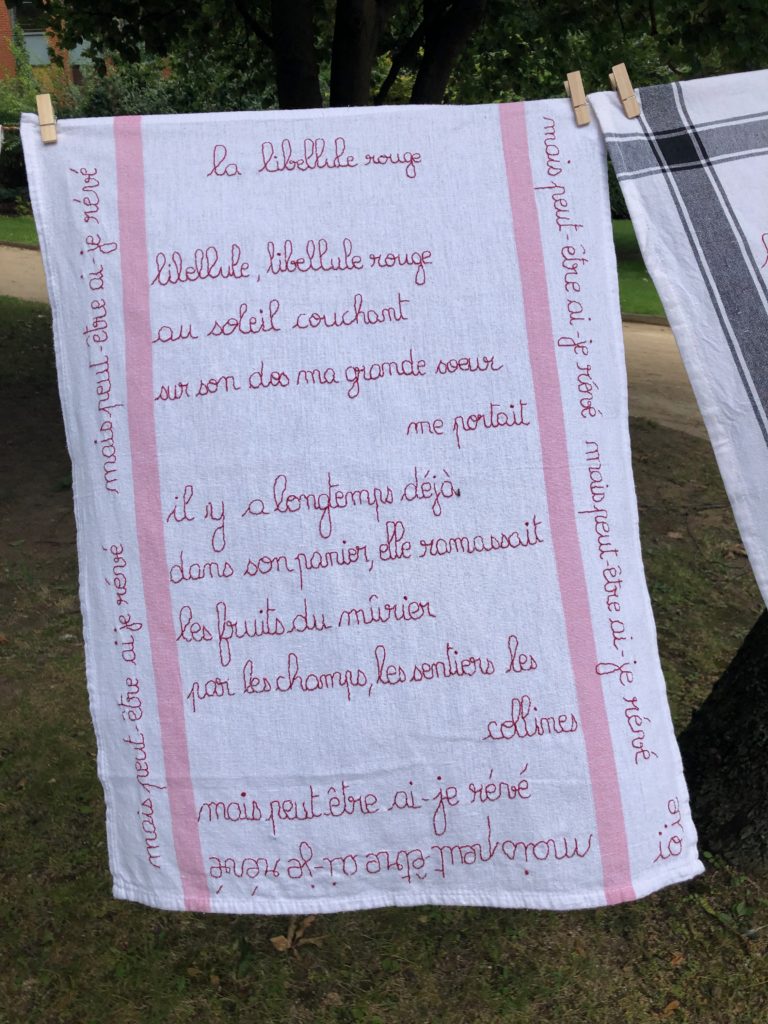 la libellule rouge
libellule, libellule rouge
au soleil couchant
sur son dos ma grande soeur
me portait
il y a longtemps déjà
dans son panier, elle ramassait
les fruits du mûrier
par les champs, les sentiers les
collines
mais peut-être ai-je révé
mais peut-être ai-je révé
mais peut-être ai je révé
mais peut-être ai-je révé
mais peut-être ai-je révé
mais peut-être ai-je révé